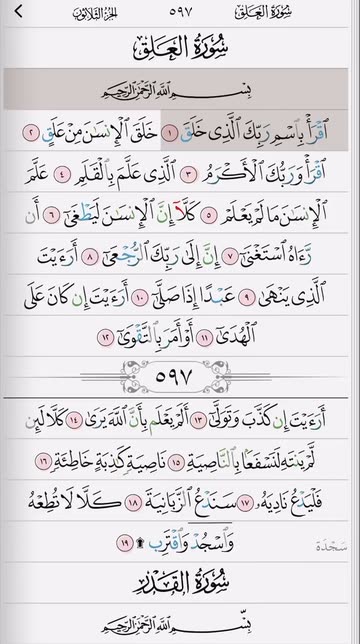 سُورَةُ العَلَقِ ٥٩٧ الجُزْءُ الثَّلَاثُونَ
سُورَةُ العَلَقِ
بِسْمِ اللَّهِ الرَّحْمَٰنِ الرَّحِيمِ
ٱقْرَأْ بِٱسْمِ رَبِّكَ ٱلَّذِى خَلَقَ ١ خَلَقَ ٱلْإِنسَٰنَ مِنْ عَلَقٍ ٢
ٱقْرَأْ وَرَبُّكَ ٱلْأَكْرَمُ ٣ ٱلَّذِى عَلَّمَ بِٱلْقَلَمِ ٤ عَلَّمَ
ٱلْإِنسَٰنَ مَا لَمْ يَعْلَمْ ٥ كَلَّآ إِنَّ ٱلْإِنسَٰنَ لَيَطْغَىٰٓ ٦ أَن
رَّءَاهُ ٱسْتَغْنَىٰٓ ٧ إِنَّ إِلَىٰ رَبِّكَ ٱلرُّجْعَىٰٓ ٨ أَرَءَيْتَ
ٱلَّذِى يَنْهَىٰ ٩ عَبْدًا إِذَا صَلَّىٰٓ ١٠ أَرَءَيْتَ إِن كَانَ عَلَى
ٱلْهُدَىٰٓ ١١ أَوْ أَمَرَ بِٱلتَّقْوَىٰٓ ١٢
٥٩٧
أَرَءَيْتَ إِن كَذَّبَ وَتَوَلَّىٰٓ ١٣ أَلَمْ يَعْلَم بِأَنَّ ٱللَّهَ يَرَىٰ ١٤ كَلَّا لَئِن
لَّمْ يَنتَهِ لَنَسْفَعًۢا بِٱلنَّاصِيَةِ ١٥ نَاصِيَةٍ كَٰذِبَةٍ خَاطِئَةٍ ١٦
فَلْيَدْعُ نَادِيَهُۥ ١٧ سَنَدْعُ ٱلزَّبَانِيَةَ ١٨ كَلَّا لَا تُطِعْهُ
وَٱسْجُدْ وَٱقْتَرِب ۩ ١٩ سَجْدَة
سُورَةُ القَدْرِ
بِسْمِ اللَّهِ الرَّحْمَٰنِ الرَّحِيمِ